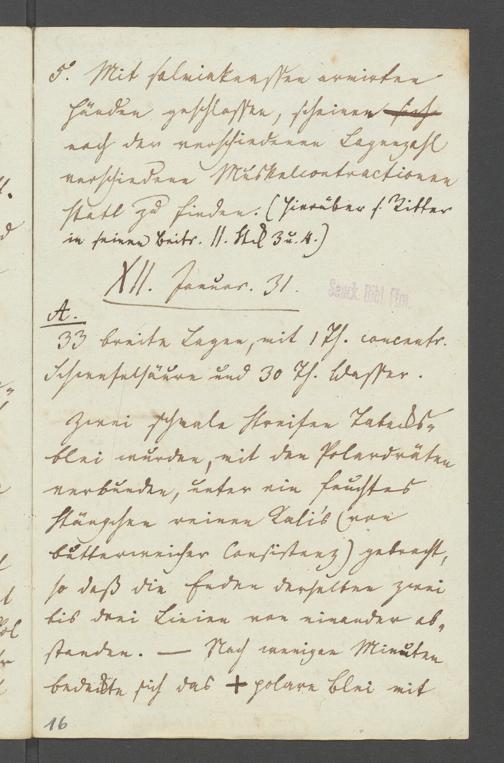 5. Mit salmiaknassen armirten
Händen geschlossen, scheinen sich
nach der verschiedenen Lagenzahl
verschiedene Muskelcontractionen
statt zu finden. (Hierüber s. Ritter
in seinen Beitr. II. St. 3 u. 4.)
XII. Januar. 31.
Senck. Bibl. Ffm.
A.
33 breite Lagen, mit 1 Th. concentr.
Schwefelsäure und 30 Th. Wasser.
Zwei schmale Streifen Tabacks-
blei wurden, mit den Polardräten
verbunden, unter ein feuchtes
Stängchen reinen Kali's (von
butterweicher Consistenz) gebracht,
so daß die Enden derselben zwei
bis drei Linien von einander ab-
standen. — Nach wenigen Minuten
bedeckte sich das + polare Blei mit
16